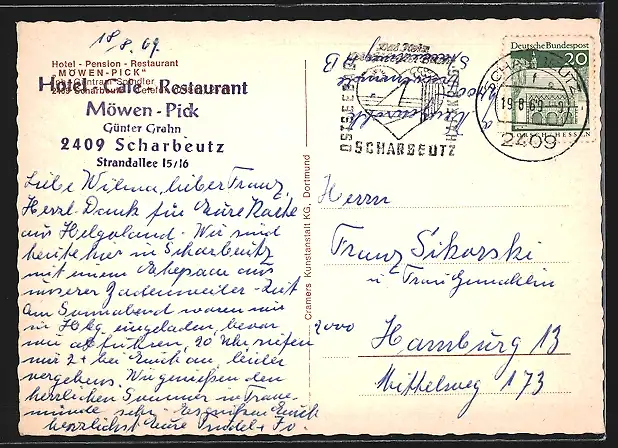 18/8. 69.
Hotel - Pension - Restaurant
"MÖWEN-PICK"
Hotel - Cafe - Restaurant
Möwen-Pick
Günter Grahn
2409 Scharbeutz
Strandallee 15/16
Liebe Wilma, lieber Franz,
Herzl. Dank für Eure Karte
aus Helgoland. Wir sind
heute hier in Scharbeutz
mit einem Ehepaar aus
unserer Badenweiler-Zeit
Am Sonnabend waren wir
in Hbg eingeladen, bevor
wir abfuhren, 20 Uhr riefen
wir 2x bei Euch an, leider
vergebens. Wir genießen den
herrlichen Sommer in Trave-
münde sehr. Es grüßen Euch
herzlichst Eure
Cramers Kunstanstalt KG, Dortmund
OSTSEEBAD
SCHARBEUTZ
Deutsche Bundespost
20
LORSCH/HESSEN
SCHARBEUTZ
19.8.69
2409
Herrn
Franz Sikorski
u. Frau Gemahlin
2000 Hamburg 13
Mittelweg 173